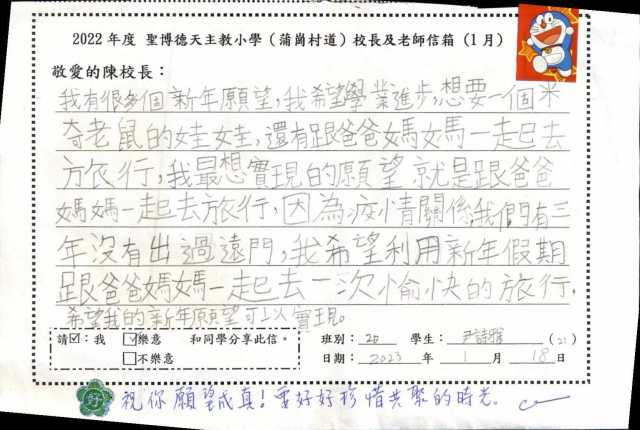 2022年度 聖博德天主教小學（蒲崗村道）校長及老師信箱（1月）
敬愛的陳校長：
我有很多個新年願望，我希望學業進步，想要一個米
奇老鼠的娃娃，還有跟爸爸媽媽一起去
方旅行，我最想實現的願望就是跟爸爸
媽媽一起去旅行，因為疫情關係，我們有三
年沒有出過遠門，我希望利用新年假期
跟爸爸媽媽一起去一次愉快的旅行，
希望我的新年願望可以實現。
請☑：我 ☑樂意 和同學分享此信。 班別： 學生：尹詩雅 (21)
□不樂意 日期：2023年1月18日
好 祝你願望成真！要好好珍惜共聚的時光。